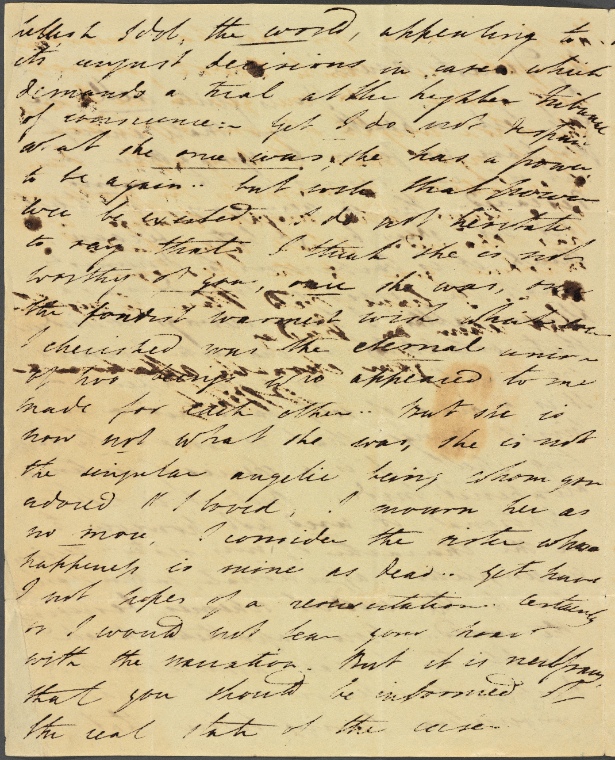 hellish Idol, the world, appealing to
its august decisions in cases which
demands a trial at the higher Tribunal
of conscience.. Yet I do not despair
what she once was, she has a power
to be again.. but will that power
ever be exerted. I do not hesitate
to say that I think she is not
worthy of you, once she was, once
the fondest warmest wish which
I cherished was the eternal union
of two beings who appeared to me
made for each other.. But she is
now not what she was, she is not
the singular angelic being whom you
adored & I loved; I mourn her as
no more, I consider the sister whose
happiness is mine as dead.. Yet have
I not hopes of a resuscitation. Certainly
or I would not tear your heart
with the narration. But it is necessary
that you should be informed of
the real state of the case